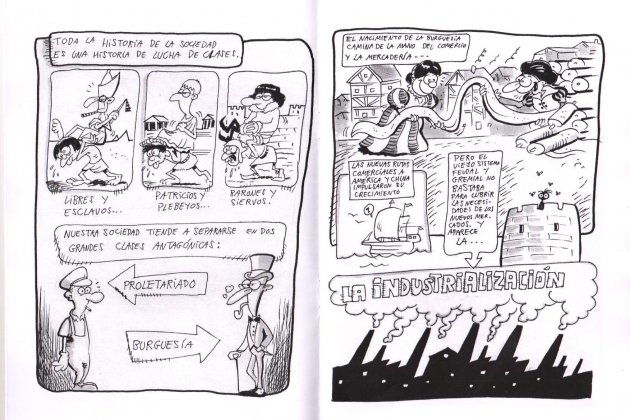 TODA LA HISTORIA DE LA SOCIEDAD
ES UNA HISTORIA DE LUCHA DE CLASES.
LIBRES Y
ESCLAVOS...
PATRICIOS Y
PLEBEYOS...
BARONES Y
SIERVOS.
NUESTRA SOCIEDAD TIENDE A SEPARARSE EN DOS
GRANDES CLASES ANTAGÓNICAS:
PROLETARIADO
BURGUESÍA
EL NACIMIENTO DE LA BURGUESÍA
CAMINA DE LA MANO DEL COMERCIO
Y LA MERCADERÍA...
LAS NUEVAS RUTAS
COMERCIALES A
AMÉRICA Y CHINA
IMPULSARON SU
CRECIMIENTO
PERO EL
VIEJO SISTEMA
FEUDAL Y
GREMIAL NO
BASTABA
PARA CUBRIR
LAS NECESI-
DADES DE LOS
NUEVOS MER-
CADOS, Y
APARECE
LA...
LA INDUSTRIALIZACIÓN